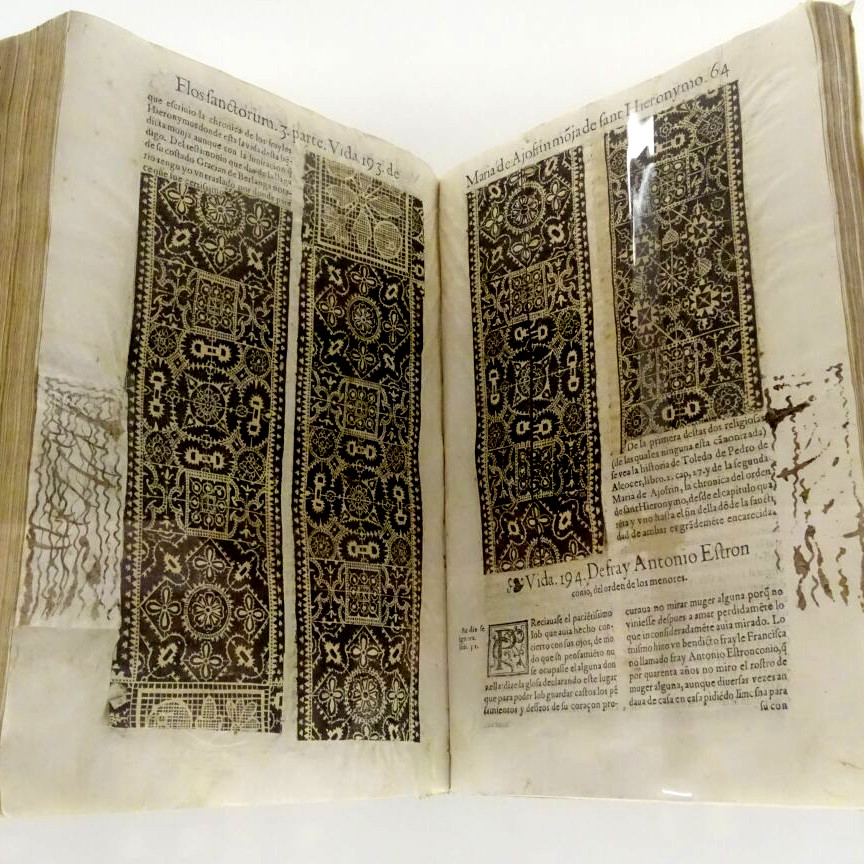 Flos sanctorum. 3. parte. Vida 193. de
que escriuio la chronica de los frayles
Hieronymos donde esta la vida desta
dicta monja aunque con la limitacion q̃
digo. Del testimonio que dan de la llaga
de su costado Gracian de Berlanga
rio tengo yo vn traslado, por
Maria de Ajofrin mõja de sant Hieronymo. 64
De la primera destas dos religiosas
(de las quales ninguna esta cãnonizada)
se vea la historia de Toledo de Pedro de
Alcocer, libro. 2. cap. 27. y de la segunda
Maria de Ajofrin, la chronica del orden
de sant Hieronymo, desde el capitulo
y vno hasta el fin della dõde la sancti
dad de ambas es grãdemẽte encarecida.
Vida. 194. De fray Antonio Estron
conio, del orden de los menores.
REcitauase el pacientissimo
Iob que auia hecho con-
cierto con sus ojos, de mo
do que ni pensamiẽto no
se ocupasse el alguna don
zella: dize la glosa declarando este lugar
que para poder Iob guardar castos los pẽ
samientos y desseos de su coraçon pro-
curaua no mirar muger alguna porq̃ no
viniesse despues a amar perdidamẽte lo
que inconsideradamẽte auia mirado. Lo
mismo hizo vn bendicto frayle Francisca
no llamado fray Antonio Estronconio, q̃
por quarenta años no miro el rostro de
muger alguna, aunque diuersas vezes an
daua de casa en casa pidiẽdo limosna para
su con